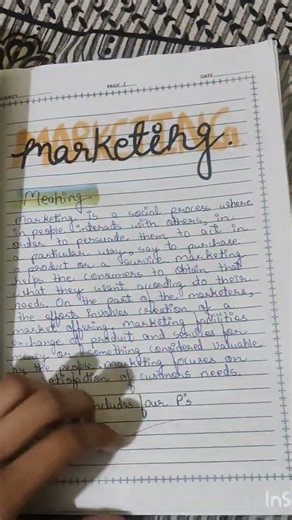 PAGE 1
DATE
MARKETING
Marketing.
Meaning
Marketing is a social process where
in people interacts with others, in
order to persuade them to act in
a particular way, say to purchase
a product or a service marketing
helps the consumers to obtain that
what they want according do their
needs. On the part of the marketers,
the effort involves creation of
market offering, marketing facilities
exchange of product and services for
money or something considered valuable
by the people. marketing focuses on
satisfaction of customers needs.
includes four P's
InS